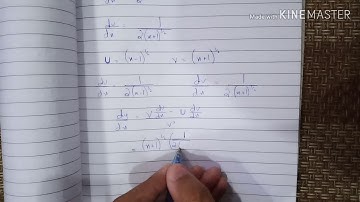 Made with KINEMASTER
du/dx = 1/2(x+1)^½
U = (x-1)^½ V = (x+1)^½
du/dx = 1/2(x-1)^½ dv/dx = 1/2(x+1)^½
dy/dx = V du/dx - U dv/dx / V²
= (x+1)^½ (1/2(